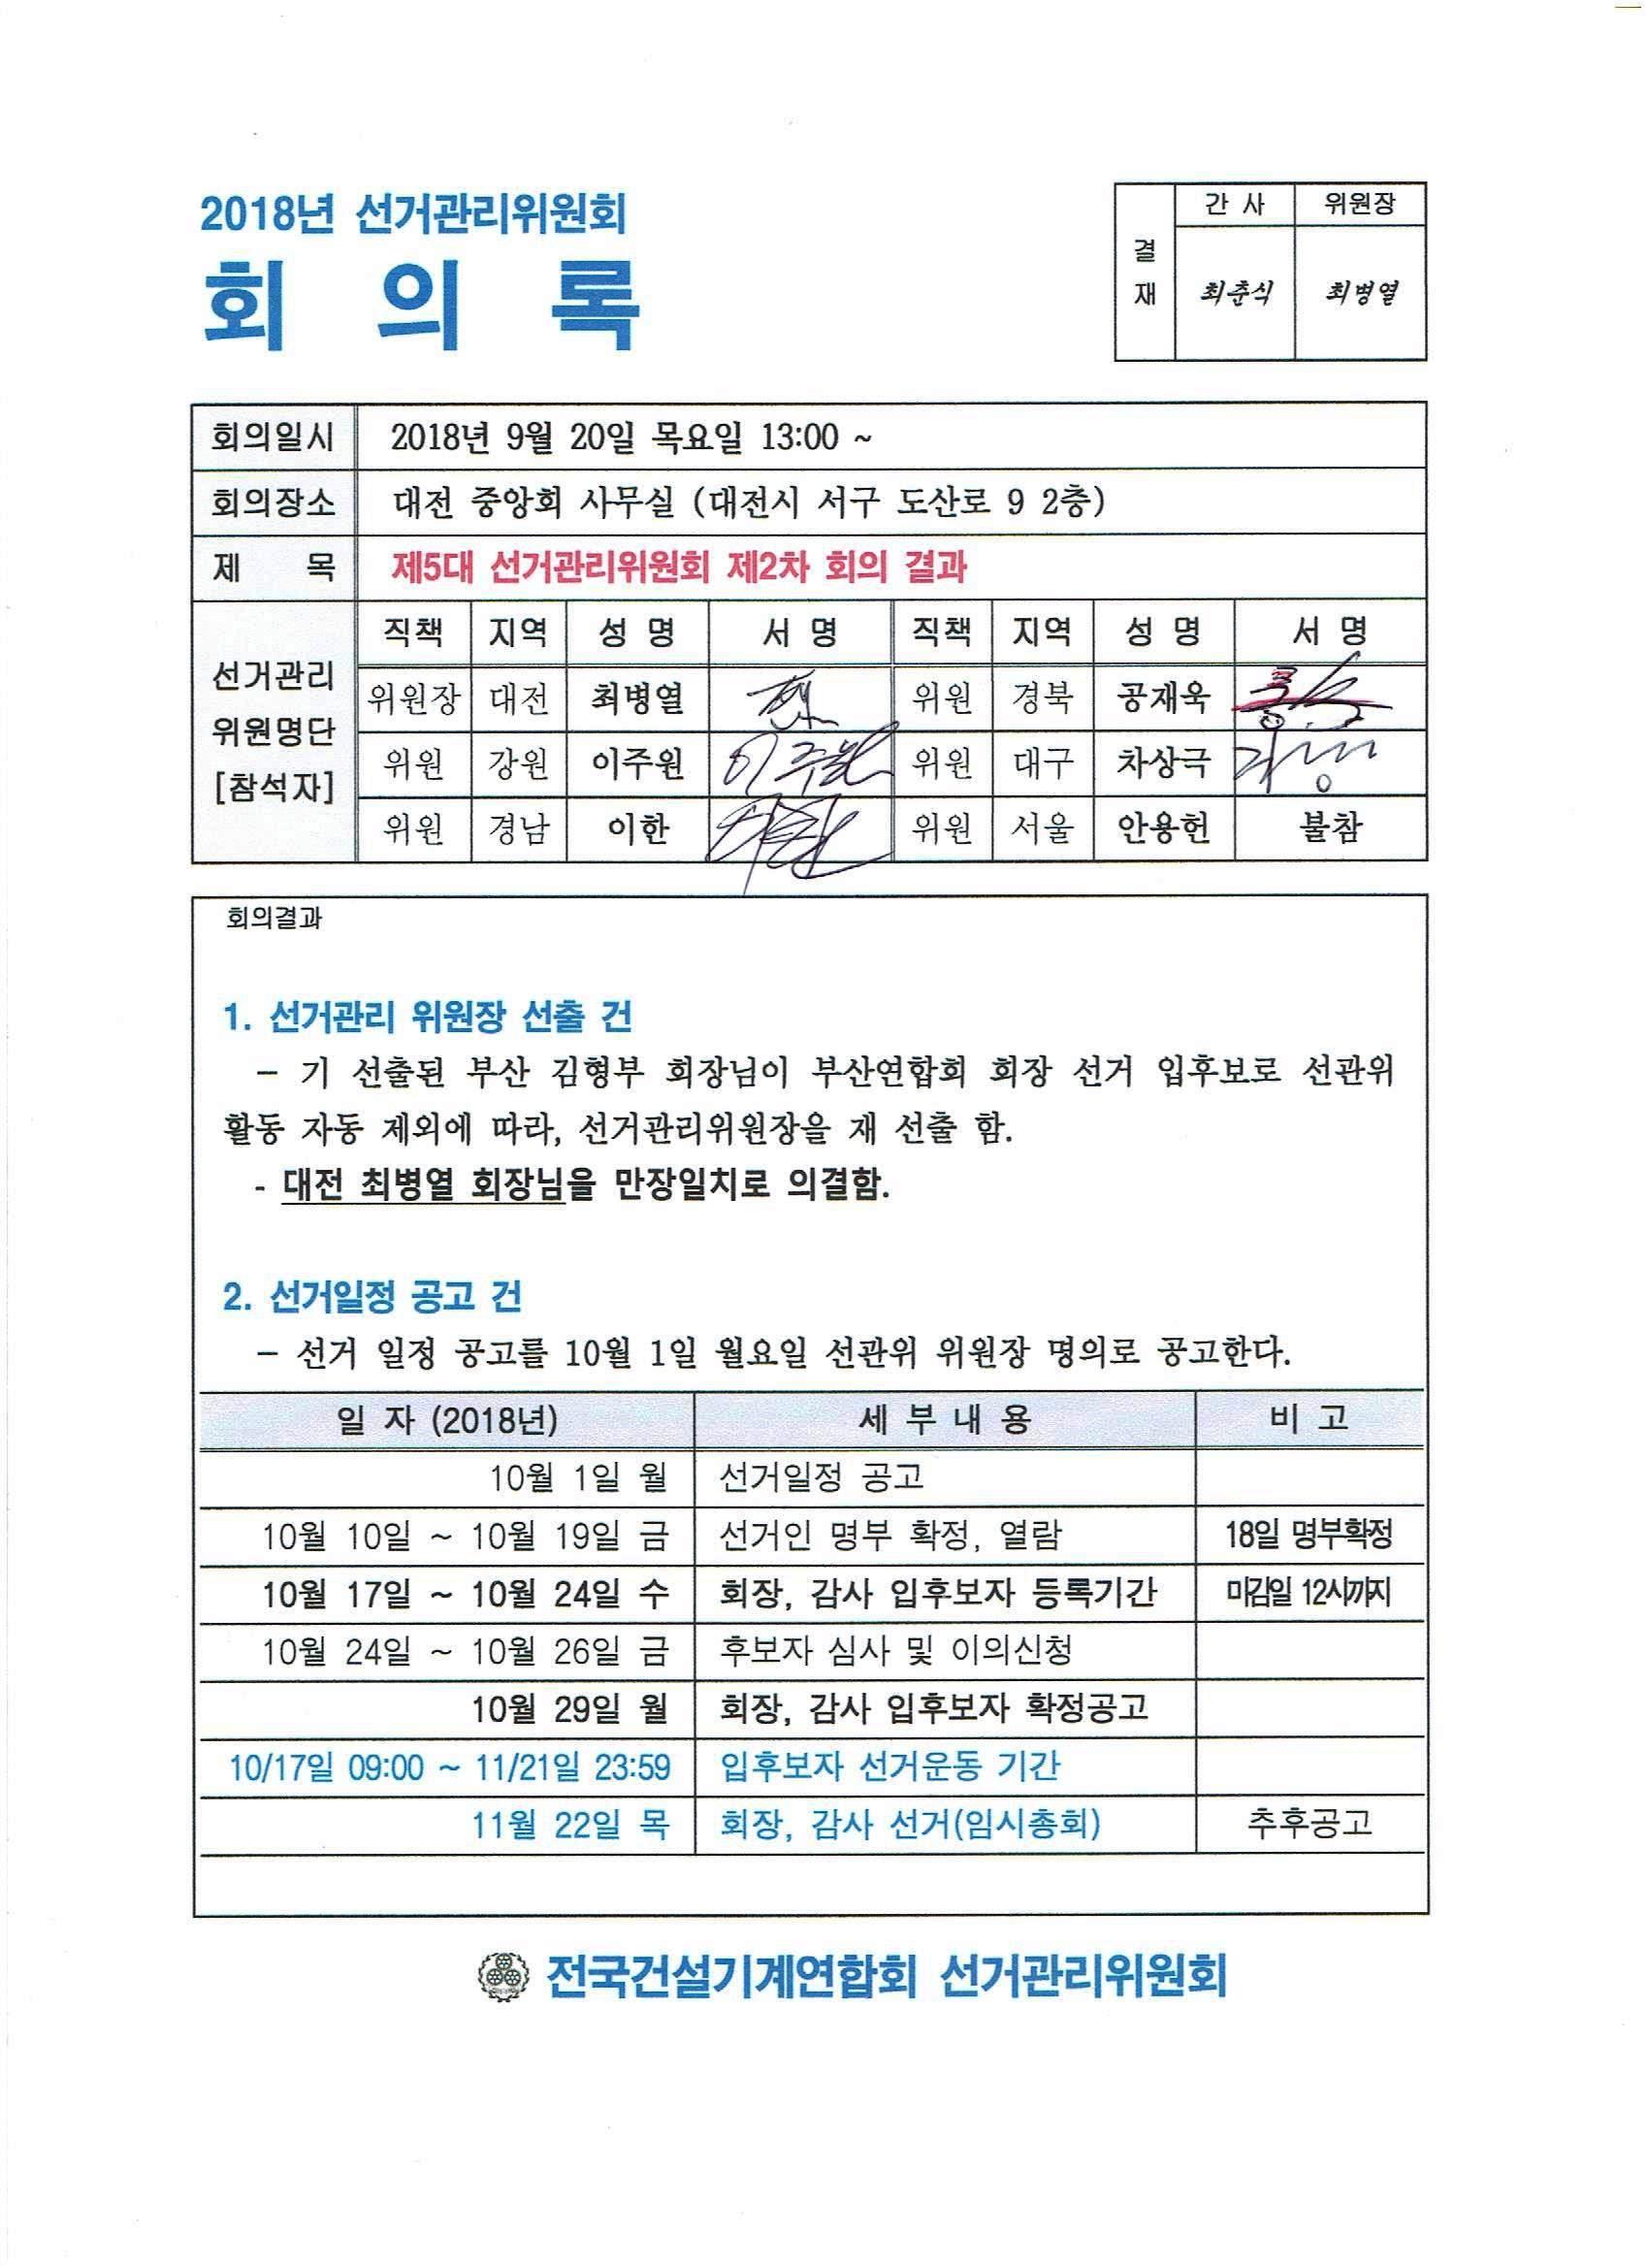 2018년 선거관리위원회
회 의 록
결재 간 사 위원장
최춘식 최병열
회의일시 2018년 9월 20일 목요일 13:00 ~
회의장소 대전 중앙회 사무실 (대전시 서구 도산로 9 2층)
제 목 제5대 선거관리위원회 제2차 회의 결과
선거관리 위원명단 [참석자]
직책 지역 성 명 서 명 직책 지역 성 명 서 명
위원장 대전 최병열 위원 경북 공재욱
위원 강원 이주원 이주원 위원 대구 차상극
위원 경남 이한 위원 서울 안용헌 불참
회의결과
1. 선거관리 위원장 선출 건
- 기 선출된 부산 김형부 회장님이 부산연합회 회장 선거 입후보로 선관위
활동 자동 제외에 따라, 선거관리위원장을 재 선출 함.
- 대전 최병열 회장님을 만장일치로 의결함.
2. 선거일정 공고 건
- 선거 일정 공고를 10월 1일 월요일 선관위 위원장 명의로 공고한다.
일 자 (2018년) 세 부 내 용 비 고
10월 1일 월 선거일정 공고
10월 10일 ~ 10월 19일 금 선거인 명부 확정, 열람 18일 명부확정
10월 17일 ~ 10월 24일 수 회장, 감사 입후보자 등록기간 마감일 12시까지
10월 24일 ~ 10월 26일 금 후보자 심사 및 이의신청
10월 29일 월 회장, 감사 입후보자 확정공고
10/17일 09:00 ~ 11/21일 23:59 입후보자 선거운동 기간
11월 22일 목 회장, 감사 선거(임시총회) 추후공고
전국건설기계연합회 선거관리위원회